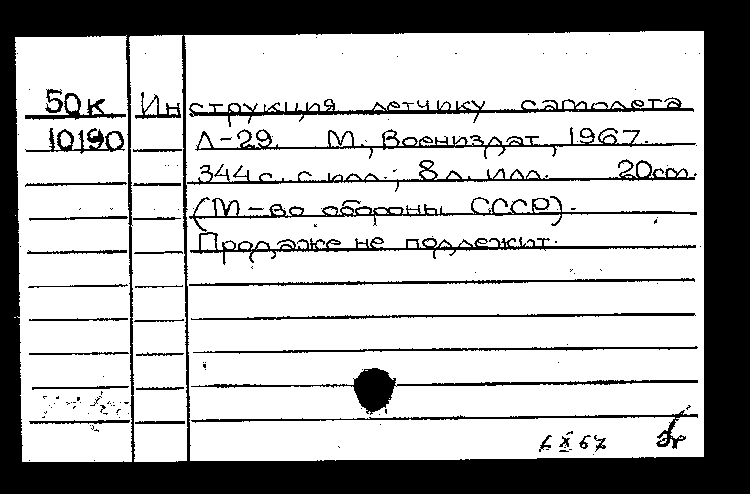 50к Инструкция летчику самолета
10190 Л-29. М., Воениздат, 1967.
344 с. с илл.; 8 л. илл. 20 см.
(М-во обороны СССР).
Продаже не подлежит.
6 X 67